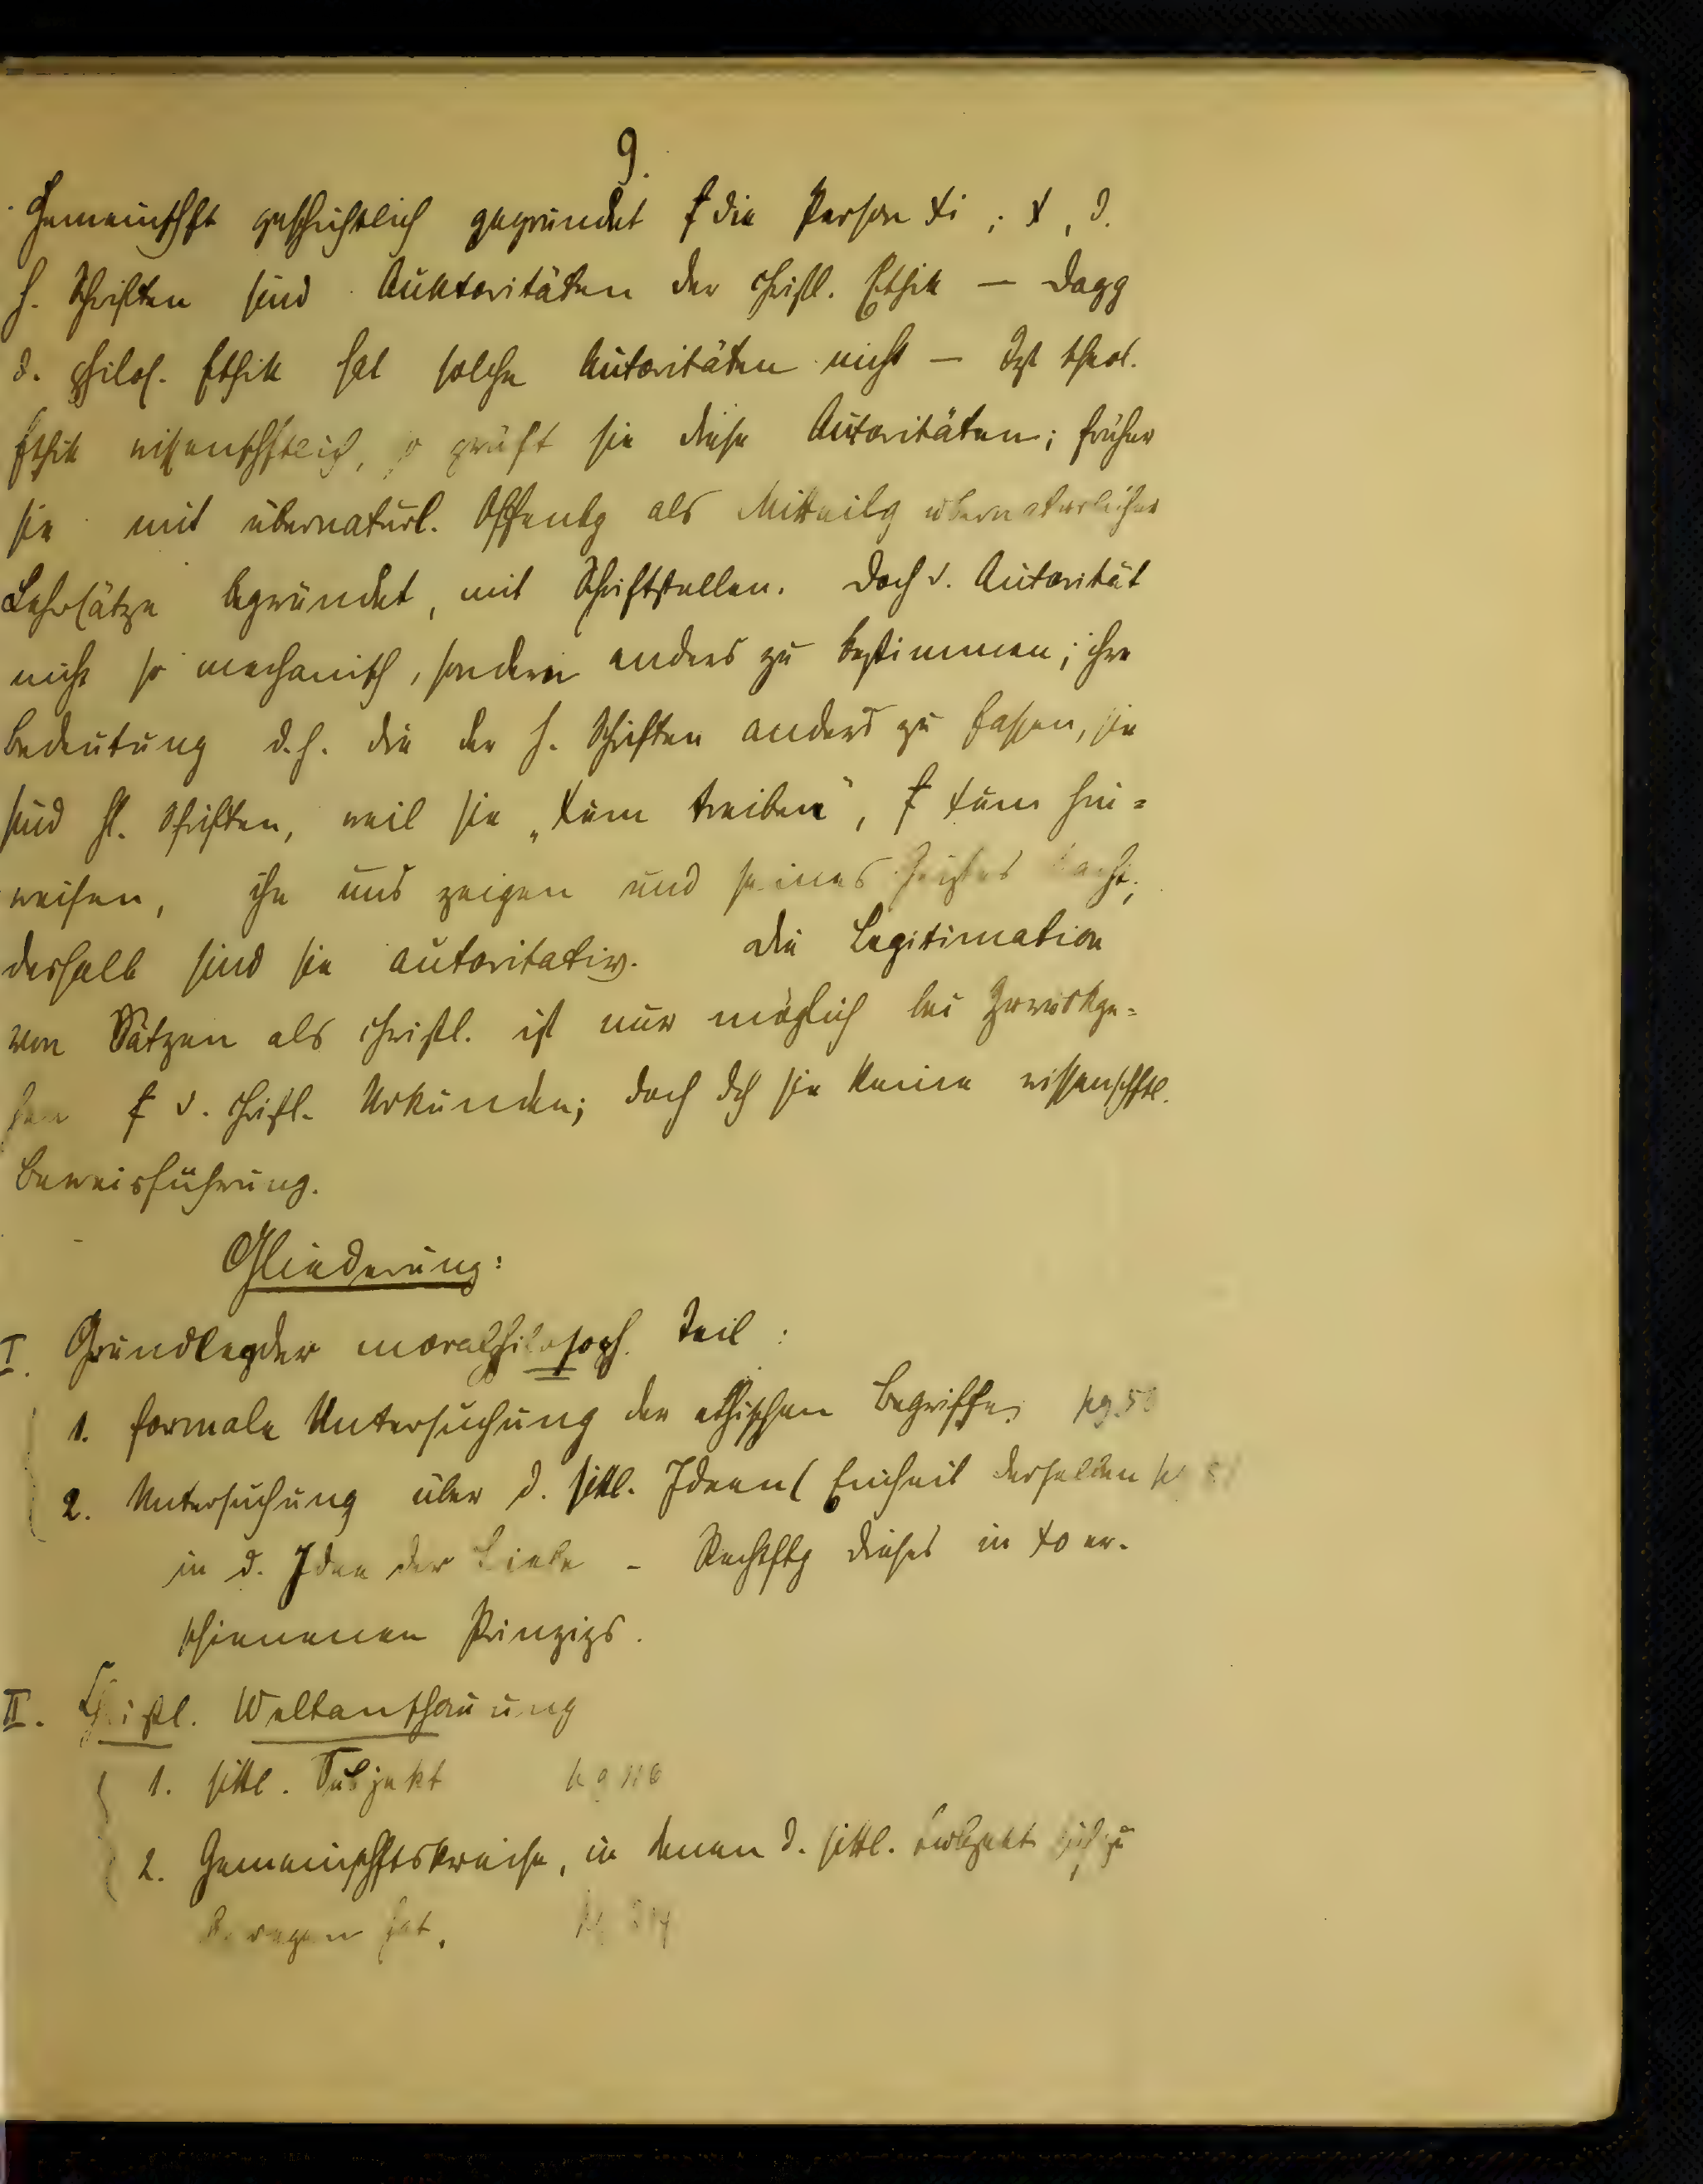 9.
Gemeinschft geschichtlich gegründet f die Person Xi ; X, d.
h. Schriften sind Auktoritäten der christl. Ethik — dagg
d. philos. Ethik hat solche Autoritäten nicht — Ist theol.
Ethik wissenschftlich, so prüft sie diese Autoritäten; früher
sie mit übernatürl. Offenbg als Mitteilg übernatürlicher
Lehrsätze begründet, mit Schriftstellen. Doch d. Autorität
nicht so mechanisch, sondern anders zu bestimmen; ihre
Bedeutung d.h. die der h. Schriften anders zu fassen, sie
sind hl. Schriften, weil sie „Xum treiben", f Xum hin=
weisen, ihn uns zeigen und seines Geistes Macht;
deshalb sind sie autoritativ. Die Legitimation
von Sätzen als christl. ist nur möglich bei Zurückge=
hen f d. christl. Urkunden; doch dch sie keine wissenschftl.
Beweisführung.
Gliederung:
I. Grundlegder moralphilosoph. Teil :
1. formale Untersuchung der ethischen Begriffe pg.
2. Untersuchung über d. sittl. Ideen (Einheit derselben
in d. Idee der Liebe – Rechtftg dieses in Xo er-
schienenen Prinzips.
II. Christl. Weltanschauung
1. sittl. Subjekt pg 116
2. Gemeinschftskreise, in denen d. sittl. Subjekt sich zu
bewegen hat.